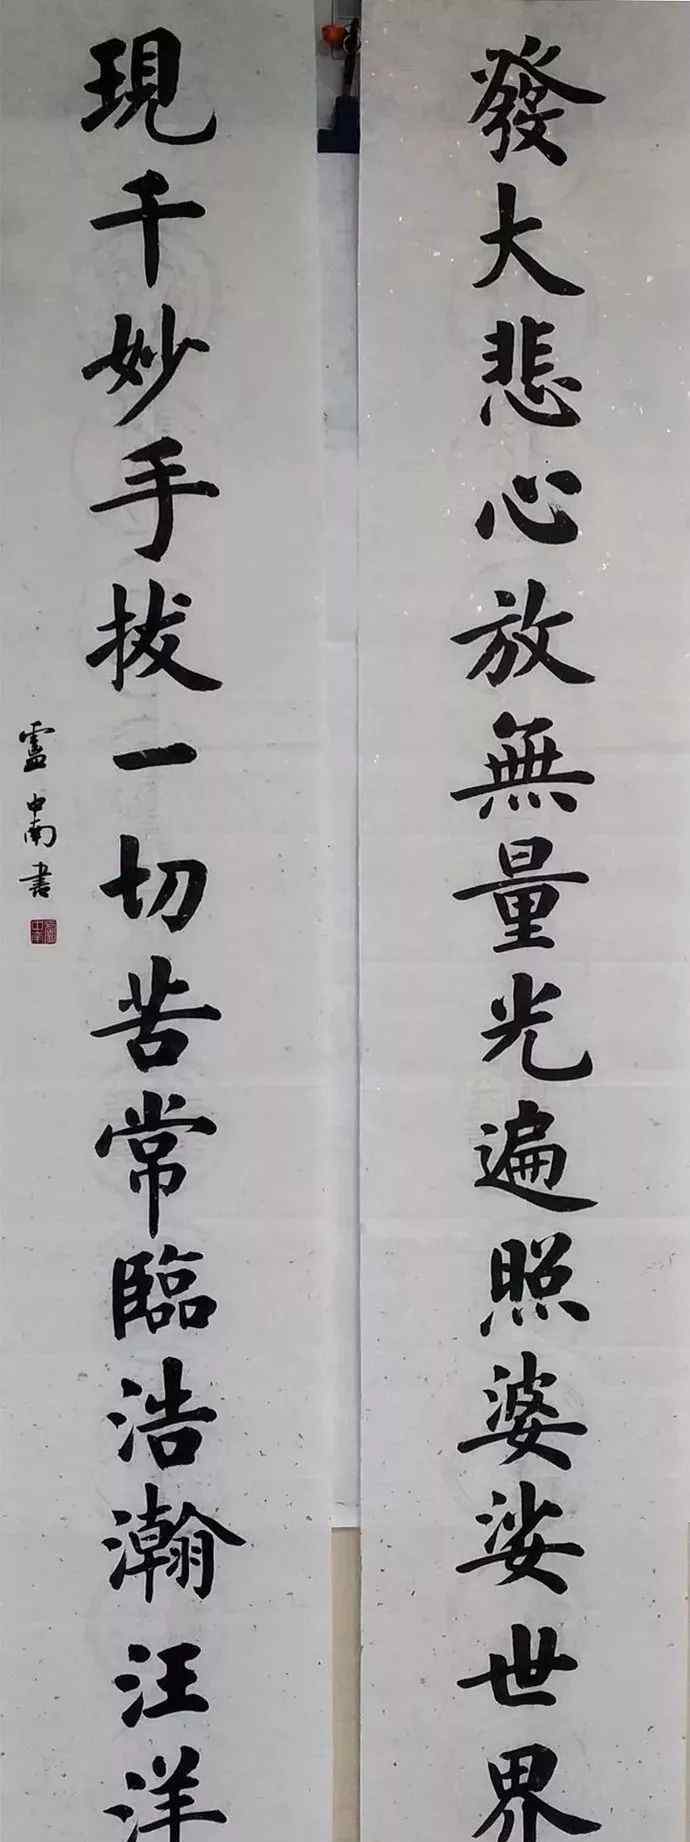 發大悲心放無量光遍照婆娑世界
現千妙手拔一切苦常臨浩瀚汪洋
盧中南書